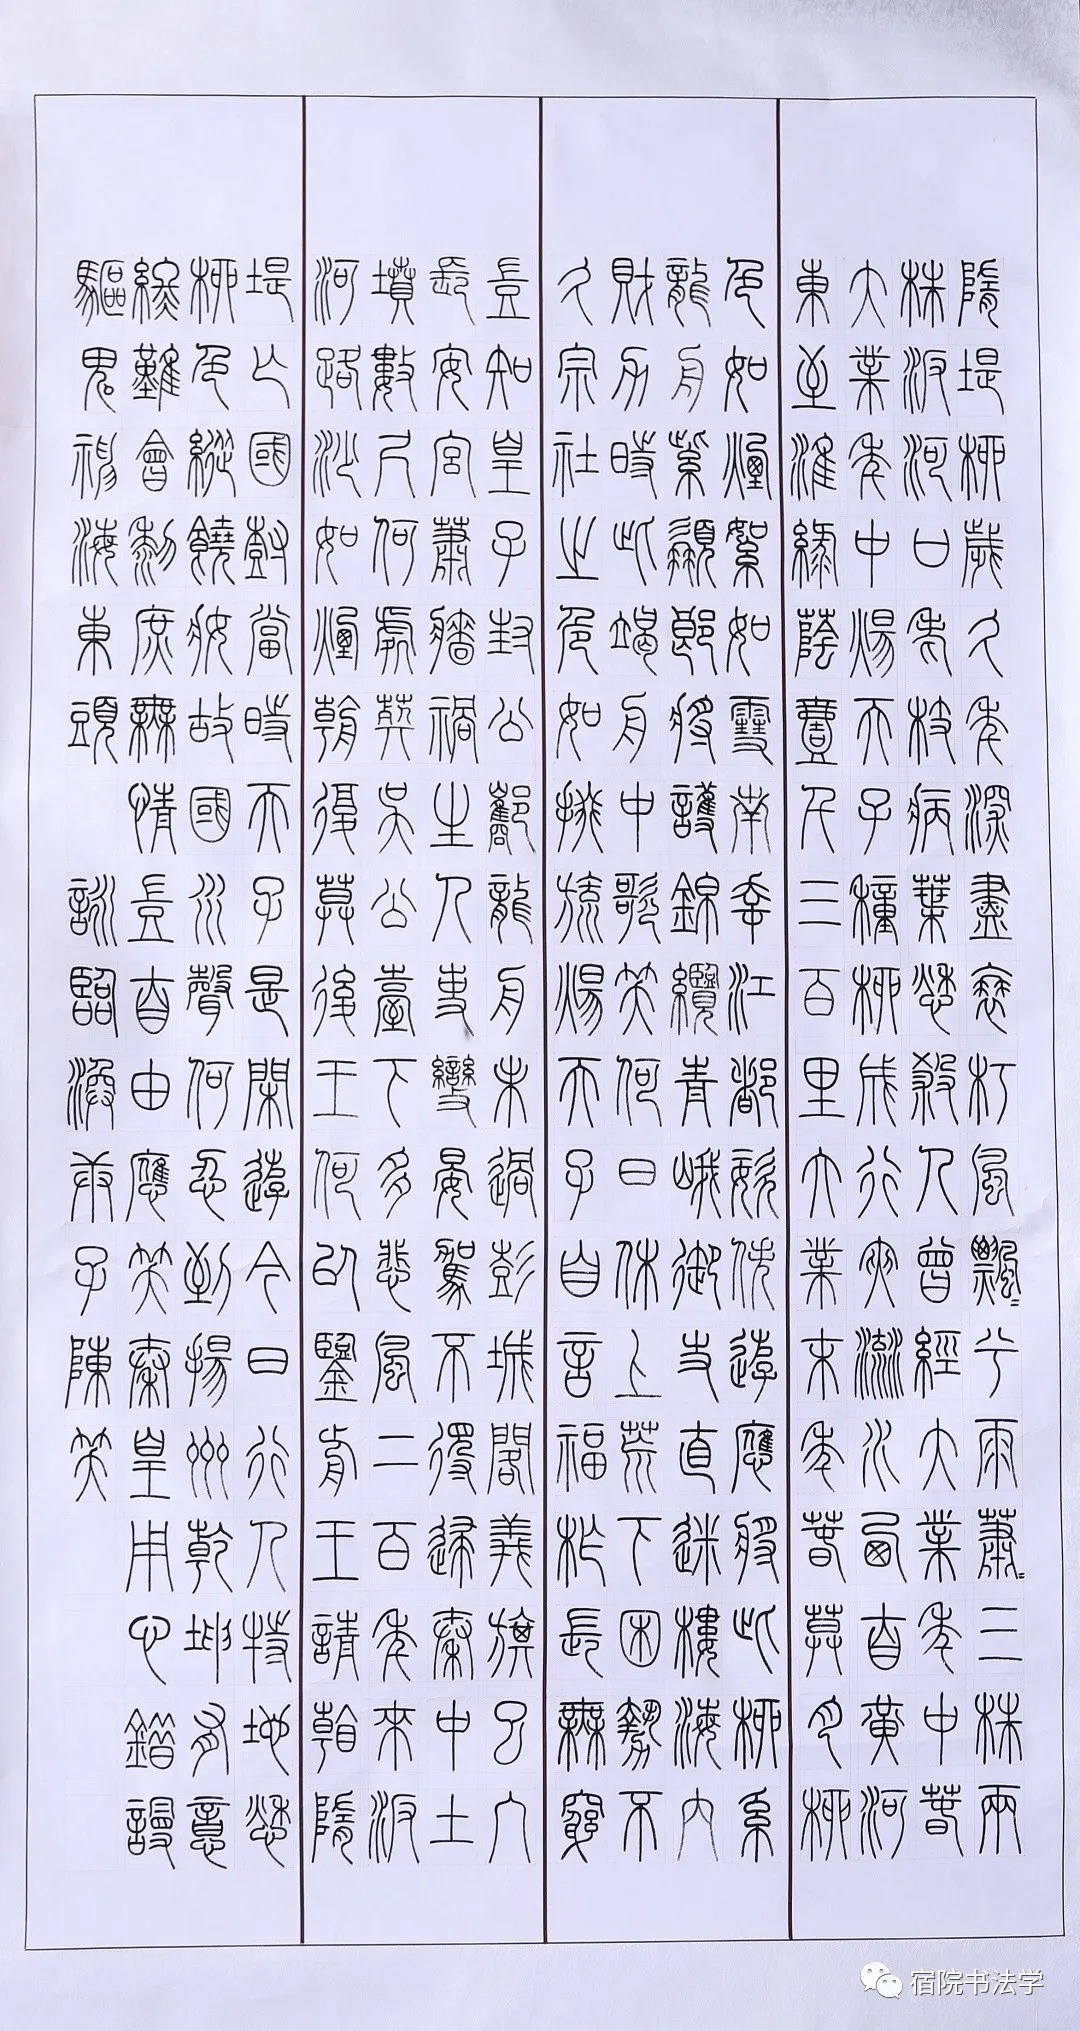 隋堤柳歲久年深盡衰朽風飄=兮雨蕭=三株兩
株汳河口老枝病葉愁殺人曾經大業年中春
大業年中煬天子種柳成行夾流水西自黃河
東至淮綠蔭壹千三百里大業末年春莫月柳
色如煙絮如雪南幸江都恣佚遊應將此柳系
龍舟紫髯郎將護錦纜青娥御史直迷樓海內
財力時此竭舟中歌笑何日休上荒下困勢不
久宗社之危如綴旒煬天子自言福祚長無窮
豈知皇子封公酅龍舟未過彭城閣義旗已入
長安宮蕭牆禍生人事變晏駕不得歸秦中土
墳數尺何處葬吳公臺下多悲風二百年來汳
河路沙如煙朝復莫後王何以鑒前王請看隋
堤亡國樹當時天子是閑遊今日行人特地愁
柳色縱饒妝故國水聲何忍到揚州乾坤有意
終難會黎庶無情豈自由應笑秦皇用心錯謾
驅鬼神海東頭 訓臨子陳笑
宿院书法学